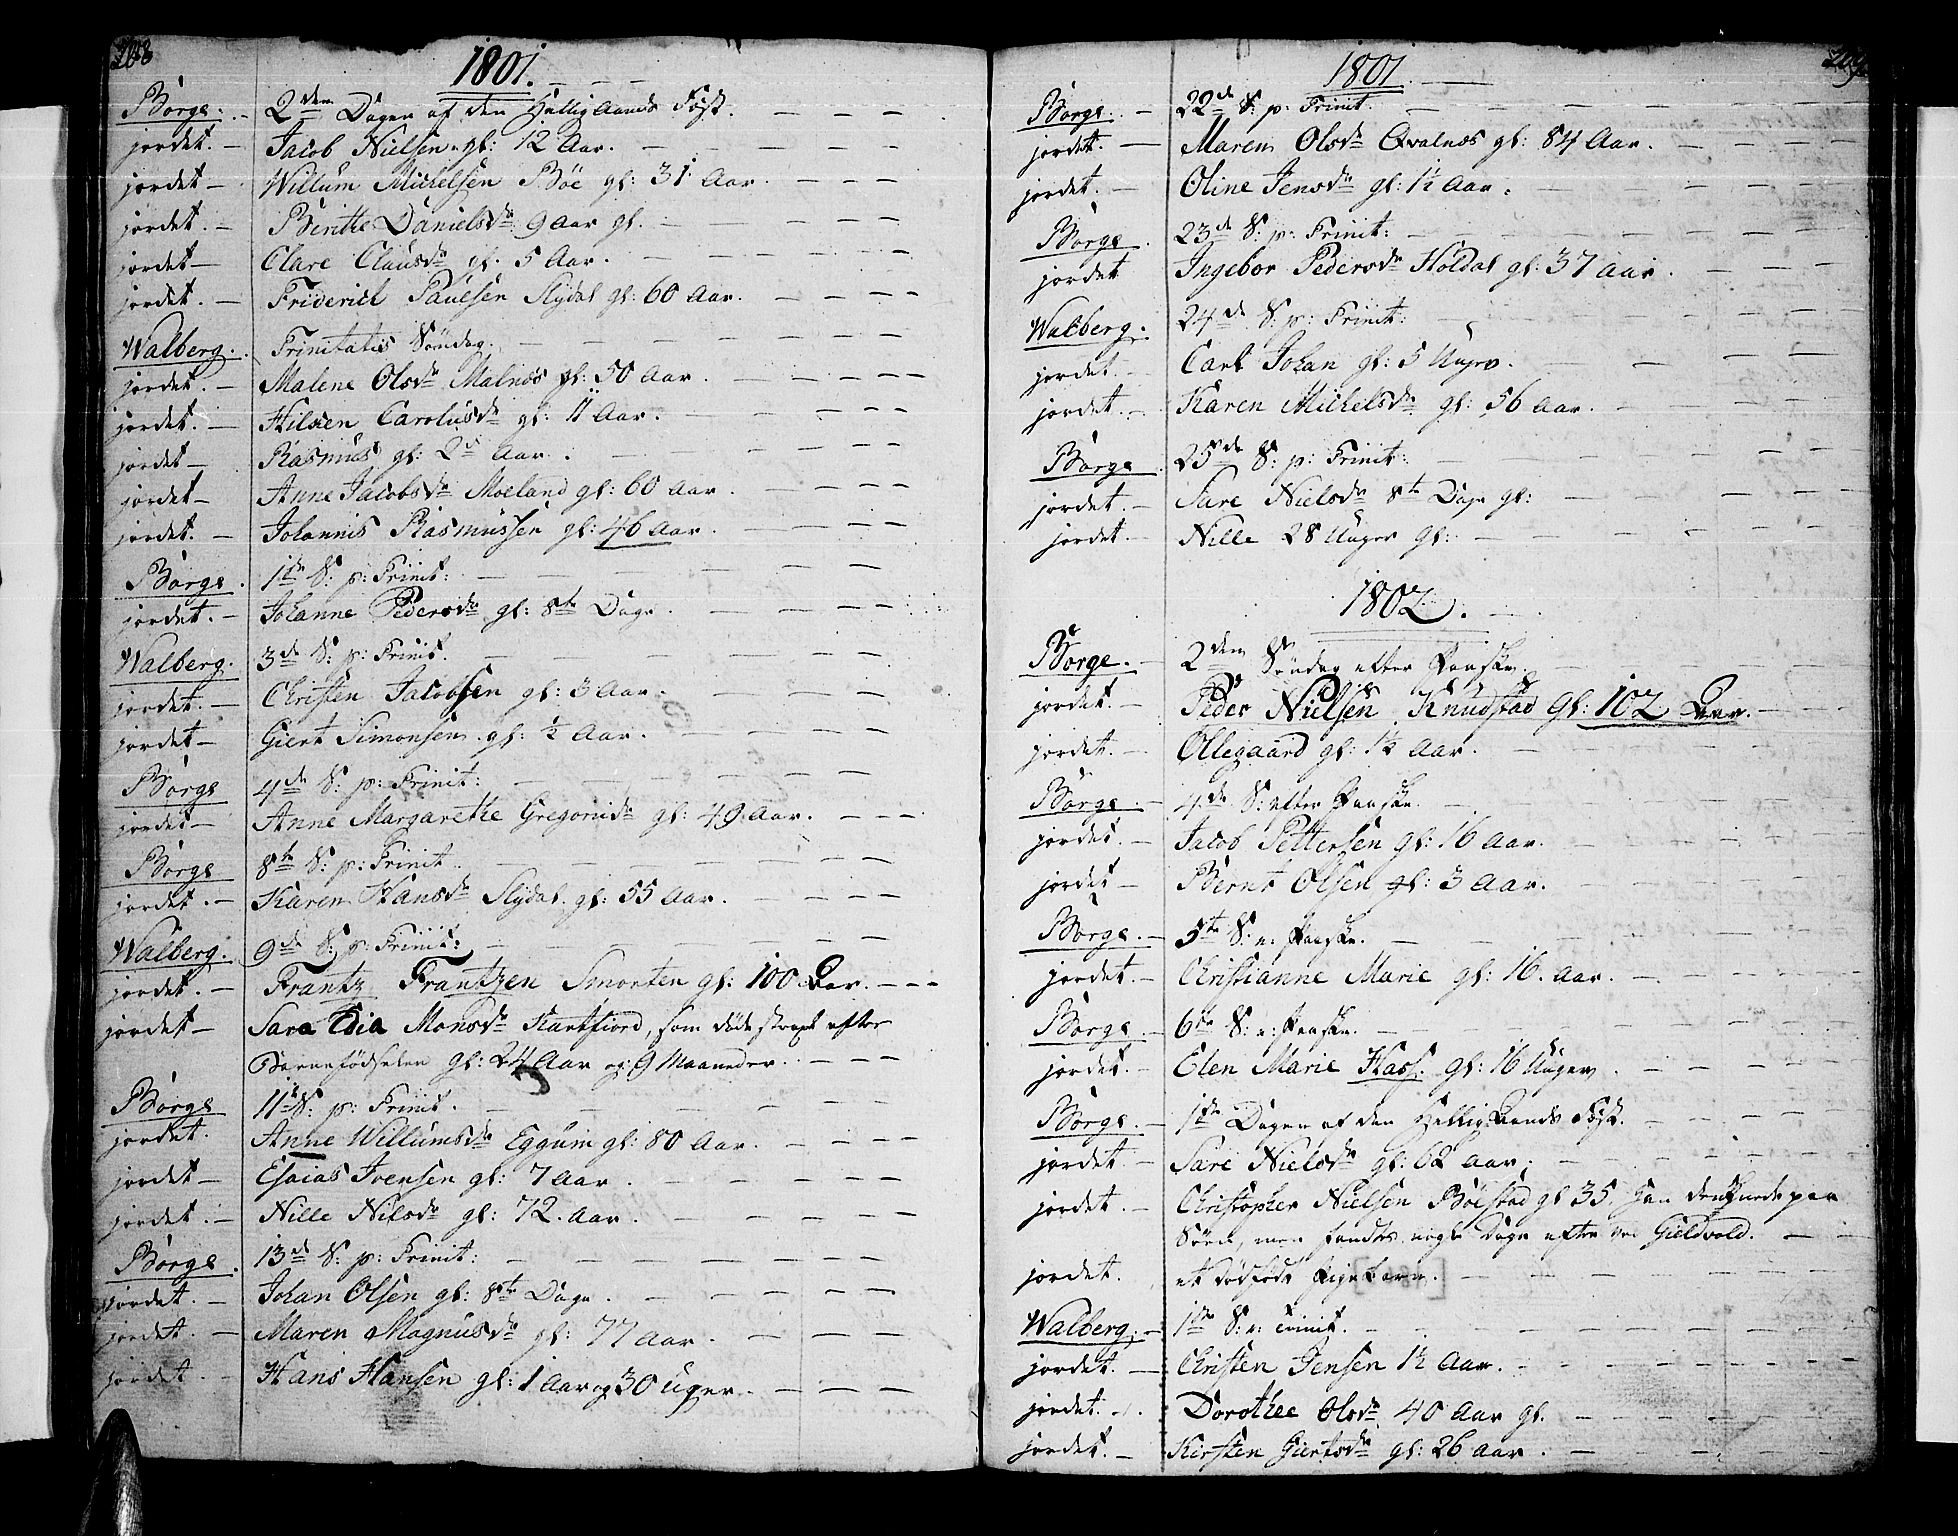 268
1801.
Borge. 2den Dagen af den Hellig Aands Fest.
jordet. Jacob Nielsen gl: 12 Aar.
jordet Willum Michelsen Böe gl: 31 Aar
jordet. Berithe Danielsdr 9 Aar gl.
jordet Clare Clausdr gl. 5 Aar.
jordet. Friderich Paulsen Slydal gl: 60 Aar.
Walberg. Trinitatis Söndag.
jordet. Malene Olsdr Malnös gl: 50 Aar.
jordet. Hilken Carolusdr gl: 11 Aar.
jordet Rasmus gl: 2 Aar.
jordet Anne Jacobsdr Moeland gl: 60 Aar.
jordet. Johannis Rasmussen gl: 46 Aar.
Borge. 1ste S: p: Trinit:
jordet. Johanne Pedersdr gl: 8te Dage
Walberg. 3de S: p: Trinit.
jordet. Christen Jacobsen gl: 3 Aar.
jordet Giert Simonsen gl: ½ Aar.
Borge 4de S: p: Trinit:
jordet Anne Margarethe Gregoriidr gl: 49 Aar.
Borge 8te S: p: Trinit
jordet. Karen Hansdr Slydal gl: 55 Aar.
Walberg. 9de S: p: Trinit:
jordet. Frantz Frantzen Smorten gl: 100 Aar.
jordet Sara Monsdr Kartfiord, som döde strax efter
Barnefödselen gl: 24 Aar og 9 Maaneder.
Borge 11te S: p: Trinit.
jordet. Anne Willumsdr Eggum gl: 80 Aar.
jordet Esaias Ivensen gl: 7 Aar
jordet. Nille Nilsdr gl: 72. Aar.
Borge. 13de S: p: Trinit:
jordet. Johan Olsen gl: 8te Dage.
jordet. Maren Magnusdr gl: 77 Aar.
jordet. Hans Hansen gl: 1 Aar og 30 Uger.
269
1801
Borge. 22de S: p: Trinit
jordet. Maren Olsdr Qvalnes gl: 84 Aar.
jordet. Oline Jensdr gl: 1½ Aar.
Borge. 23de S: p: Trinit:
jordet Ingebor Pedersdr Holdal gl: 37 Aar.
Walberg. 24de S: p: Trinit:
jordet. Carl Johan gl: 5 Uger.
jordet. Karen Michelsdr gl: 56 Aar.
Borge 25de S: p: Trinit:
jordet. Sare Nielsdr 8te Dage gl:
jordet. Nille 28 Uger gl:
1802.
Borge. 2den Söndag efter Paaske.
jordet. Peder Nielsen Knudstad gl: 102 Aar.
jordet. Ollegaard gl: 1½ Aar.
Borge. 4de S: efter Paaske.
jordet. Jacob Pettersen gl: 16 Aar.
jordet Bernt Olsen gl: 3 Aar.
Borge. 5te S: e: Paaske.
jordet. Christianne Marie gl: 16. Aar.
Borge. 6te S: e: Paaske.
jordet. Elen Marie Hass. gl: 16 Uger
Borge. 1ste Dagen af den Hellig Aands Fest.
jordet. Sare Nielsdr gl: 62 Aar.
jordet. Christopher Nielsen Böestad gl 35. han druknede paa
Söen, men fandtes nogle Dage efter ved Gieldvold.
jordet. et dödfödt Pigebarn.
Walberg. 1ste S: e: Trinit.
jordet. Christen Jensen 1½ Aar.
jordet. Dorothee Olsdr 40 Aar gl.
jordet. Kirsten Giertsdr gl: 26 Aar.